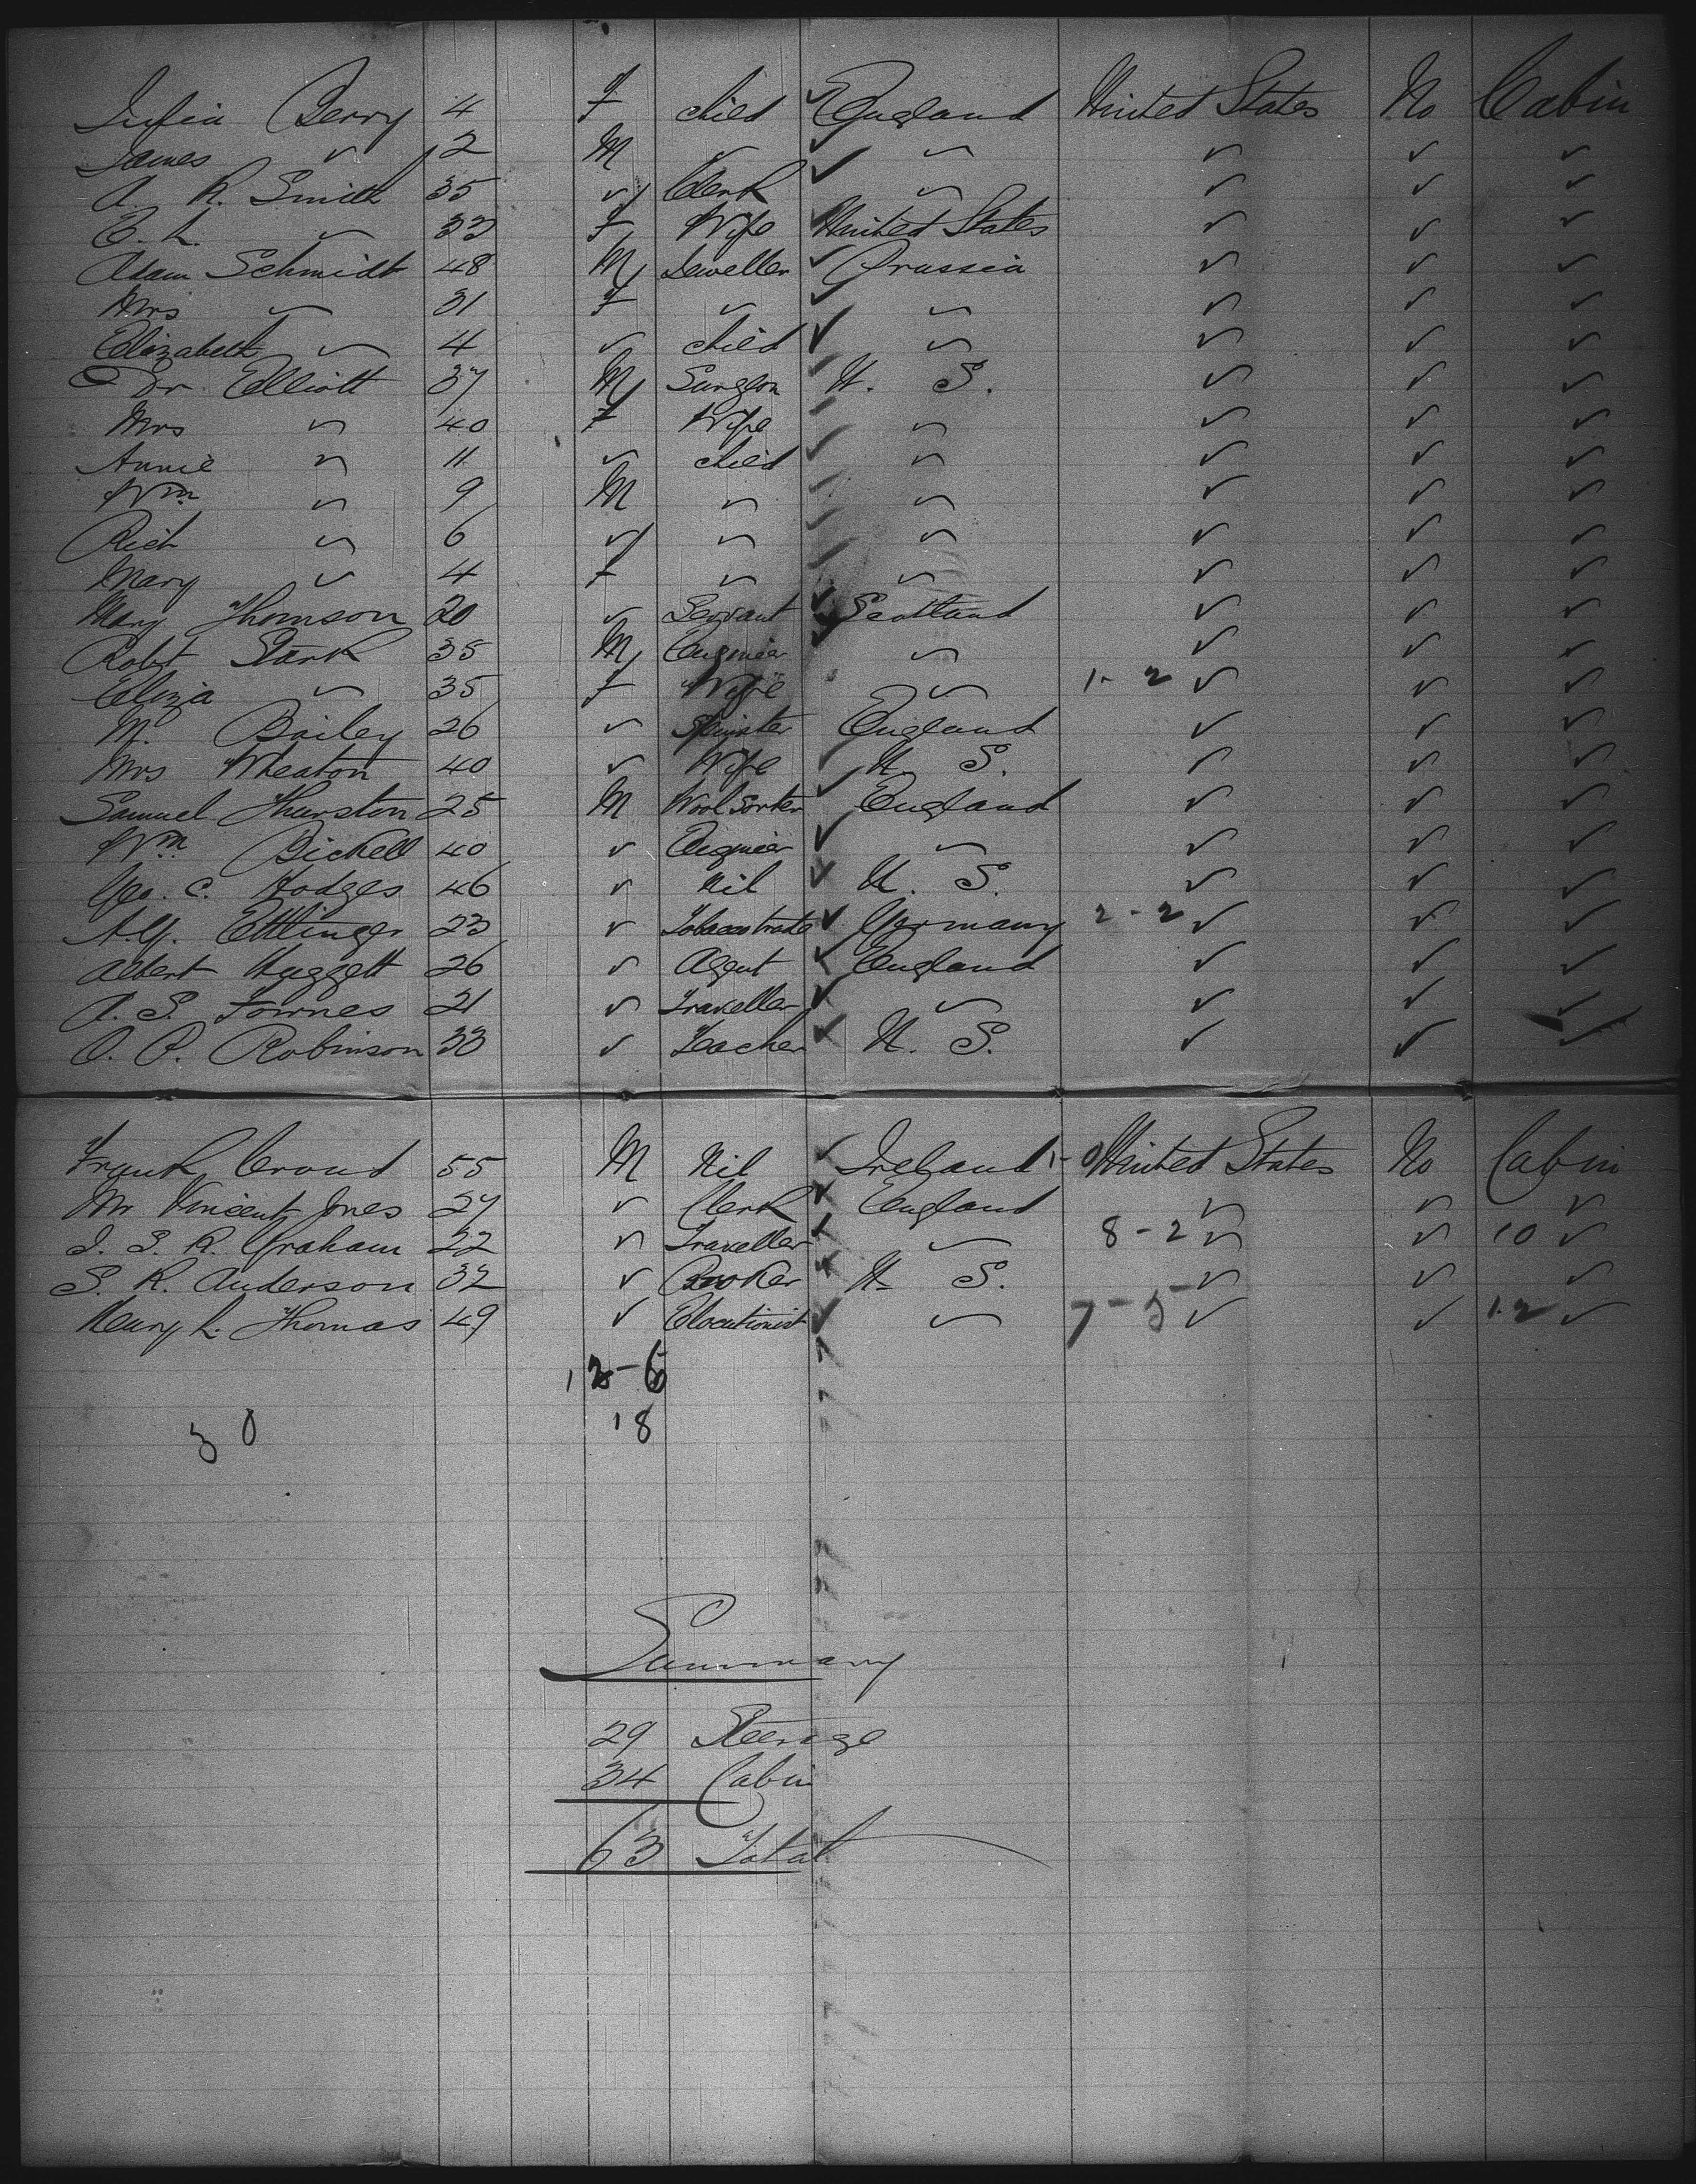 Berry 4 F child England United States No Cabin
James " 2 M " " " " "
A. R. Smith 35 " Clerk " " " "
E. L. " 33 F Wife United States " " "
Adam Schmidt 48 M Jeweller Prussia " " "
Mrs " 31 F " " " " "
Elizabeth " 4 " child " " " "
Dr Elliott 37 M Surgeon U. S. " " "
Mrs " 40 F Wife " " " "
Annie " 11 " child " " " "
Wm " 9 M " " " " "
Rich " 6 " " " " " "
Mary " 4 F " " " " "
Mary Thomson 20 " Servant Scotland " " "
Robt Stark 35 M Engineer " " " "
Eliza " 35 F Wife " 1-2 " " "
M. Bailey 26 " Spinster England " " "
Mrs Wheaton 40 " Wife U. S. " " "
Samuel Thurston 25 M Wool Sorter England " " "
Wm Bickell 40 " Engineer " " " "
Geo. C. Hodges 46 " Nil U. S. " " "
Alf. Ettlinger 23 " Germany 2-2 " " "
Albert Huggett 26 " Agent England " " "
A. S. Fownes 21 " Traveller " " " "
O. P. Robinson 33 " Teacher U. S. " " "
Frank 55 M Nil Ireland United States No Cabin
Mr Vincent Jones 27 " Clerk England " " "
J. S. R. Graham 22 " Traveller " 8-2 " " 10 "
S. R. Anderson 32 " U. S. " " "
Henry L. Thomas 49 " Elocutionist " 7-5 " " 12 "
12-6
30 18
Summary
29 Steerage
34 Cabin
63 Total